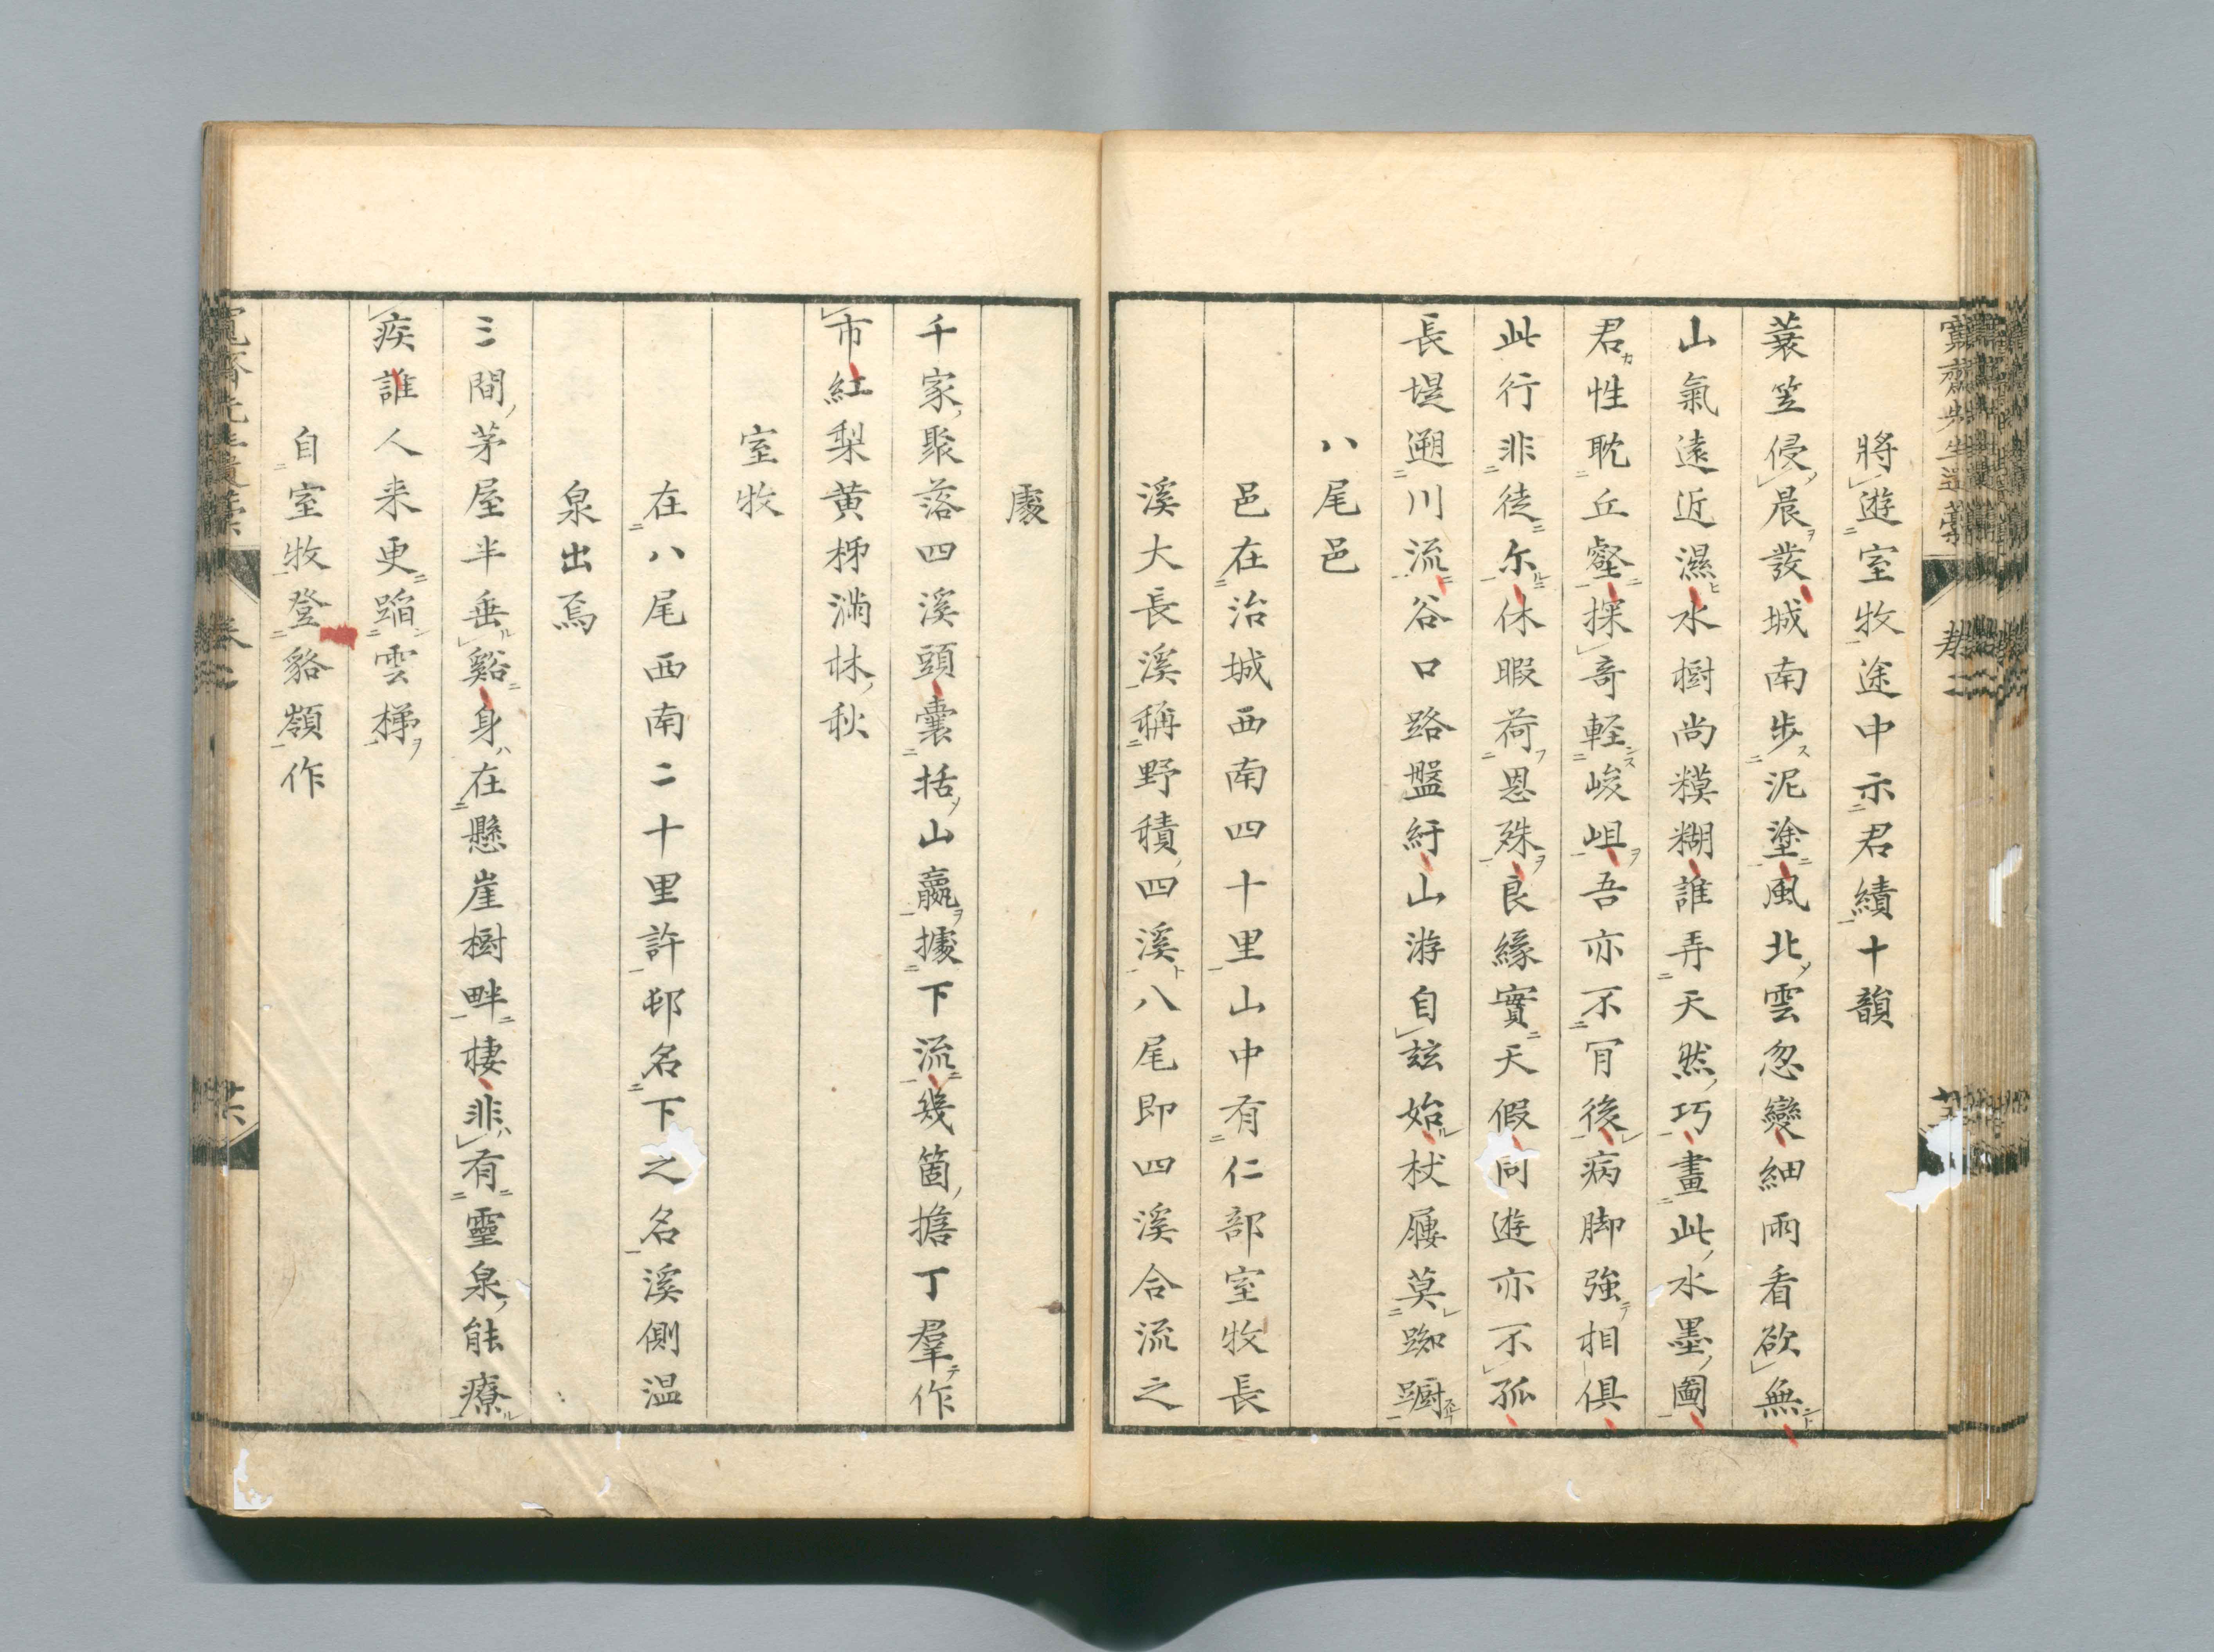 將遊室牧途中示君績十韻
蓑笠侵晨發城南步泥塗風北雲忽變細雨看欲無
山氣遠近濕水樹尚糢糊誰弄天然巧畫此水墨圖
君性耽丘壑探奇輕峻岨吾亦不肎後病脚強相俱
此行非徒尓休暇荷恩殊良緣實天假同遊亦不孤
長堤遡川流谷口路盤紆山游自玆始杖屨莫踟躕
八尾邑
邑在治城西南四十里山中有仁部室牧長
溪大長溪稱野積四溪八尾即四溪合流之
處
千家聚落四溪頭囊括山贏據下流幾箇擔丁羣作
市紅梨黄柹滿林秋
室牧
在八尾西南二十里許邨名下之名溪側温
泉出焉
三間茅屋半垂谿身在懸崖樹畔棲非有靈泉能療
疾誰人来更蹈雲梯
自室牧登貉嶺作
卷二